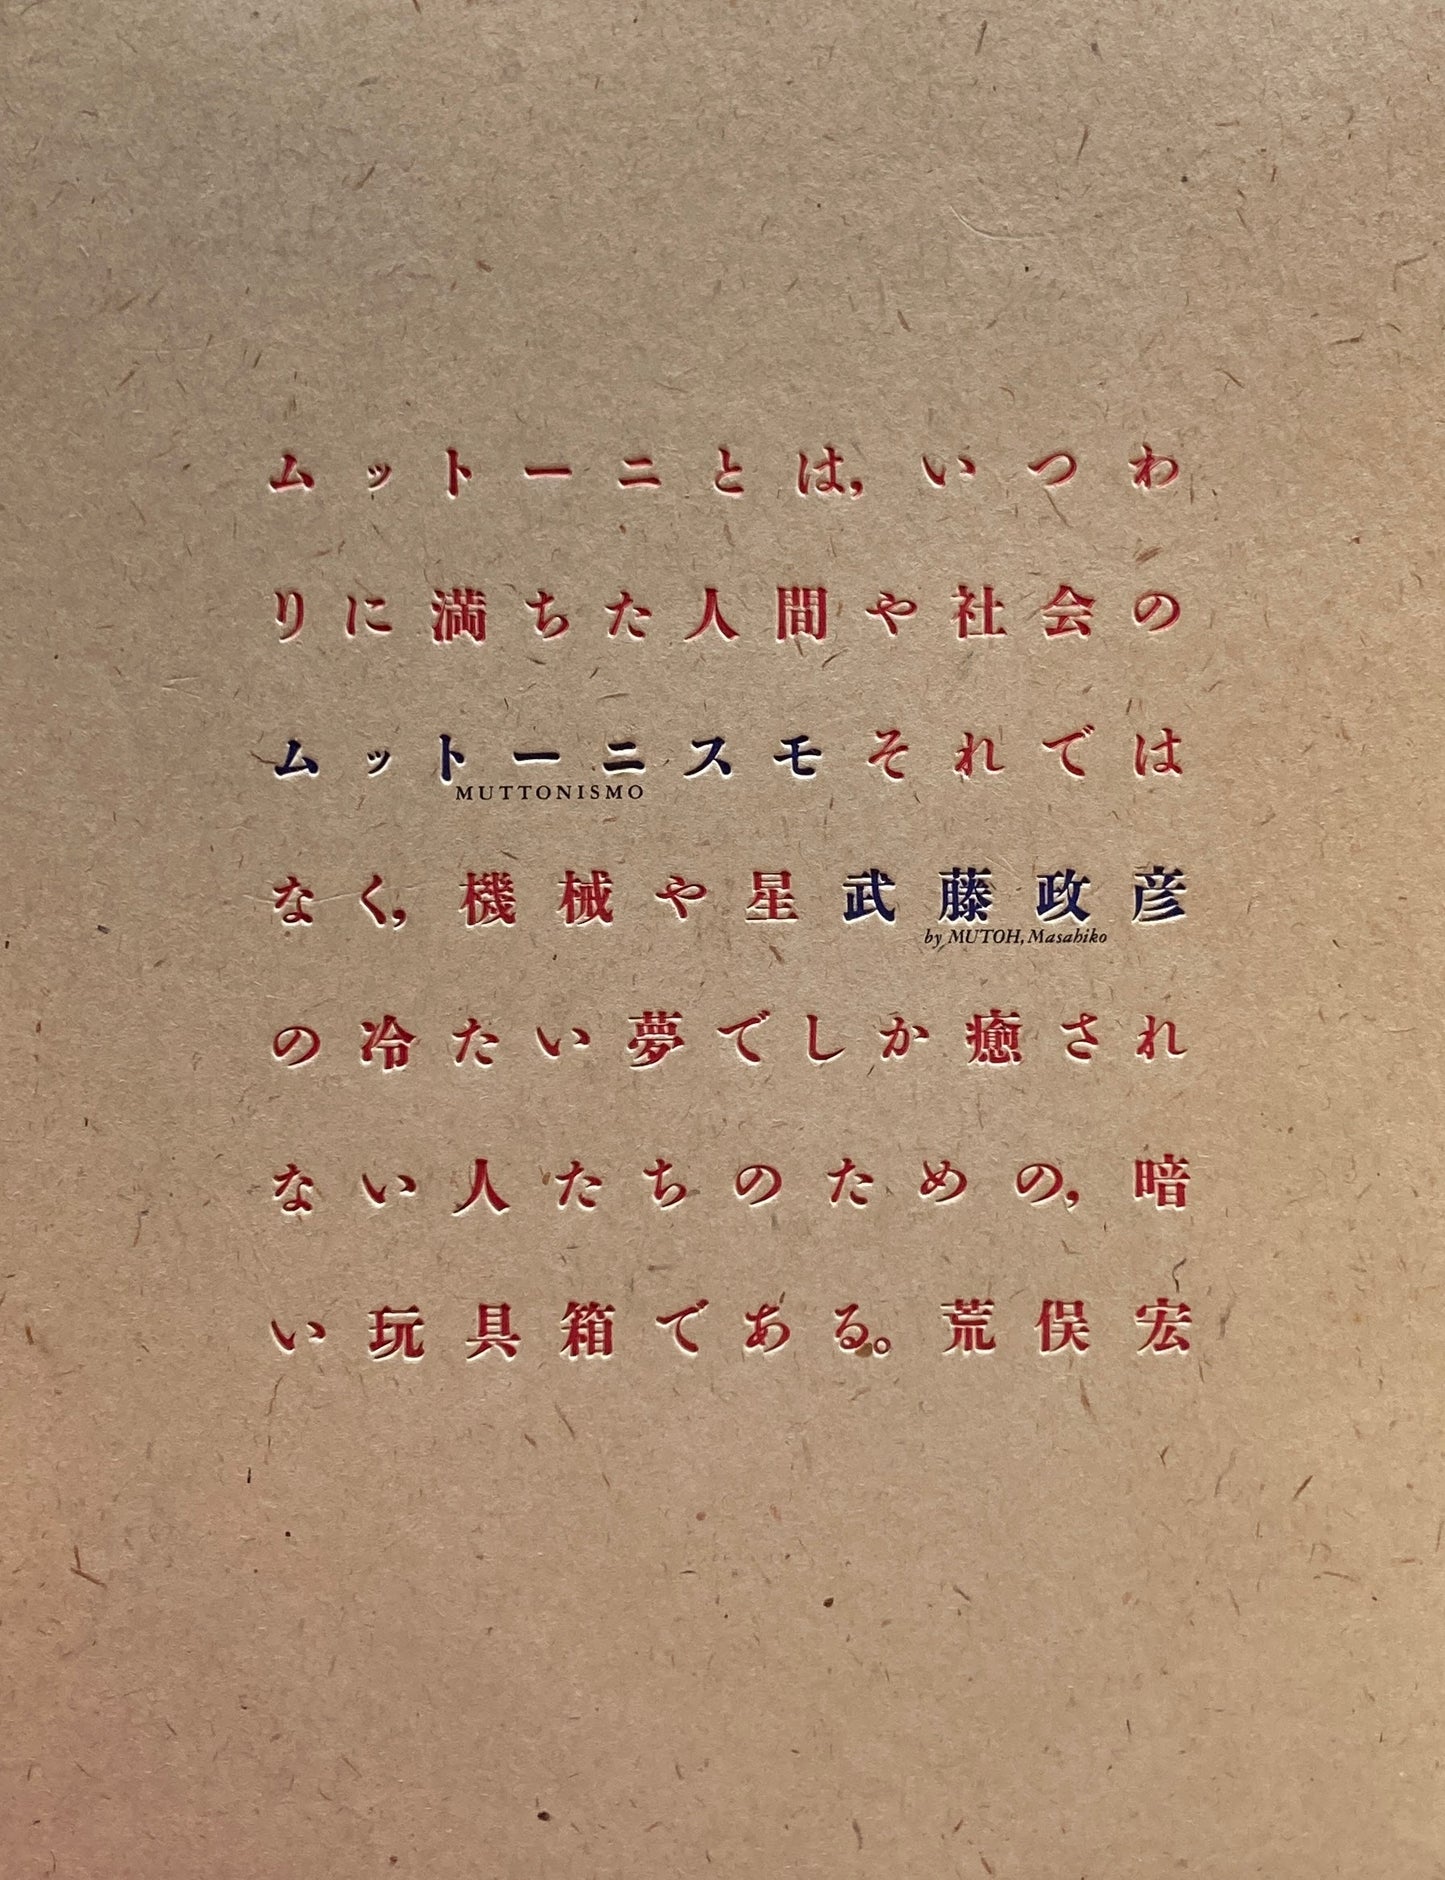 ムットーニとは,いつわ
りに満ちた人間や社会の
ムットーニスモそれでは
MUTTONISMO
なく,機械や星武藤政彦
by MUTOH, Masahiko
の冷たい夢でしか癒され
ない人たちのための,暗
い玩具箱である。荒俣宏